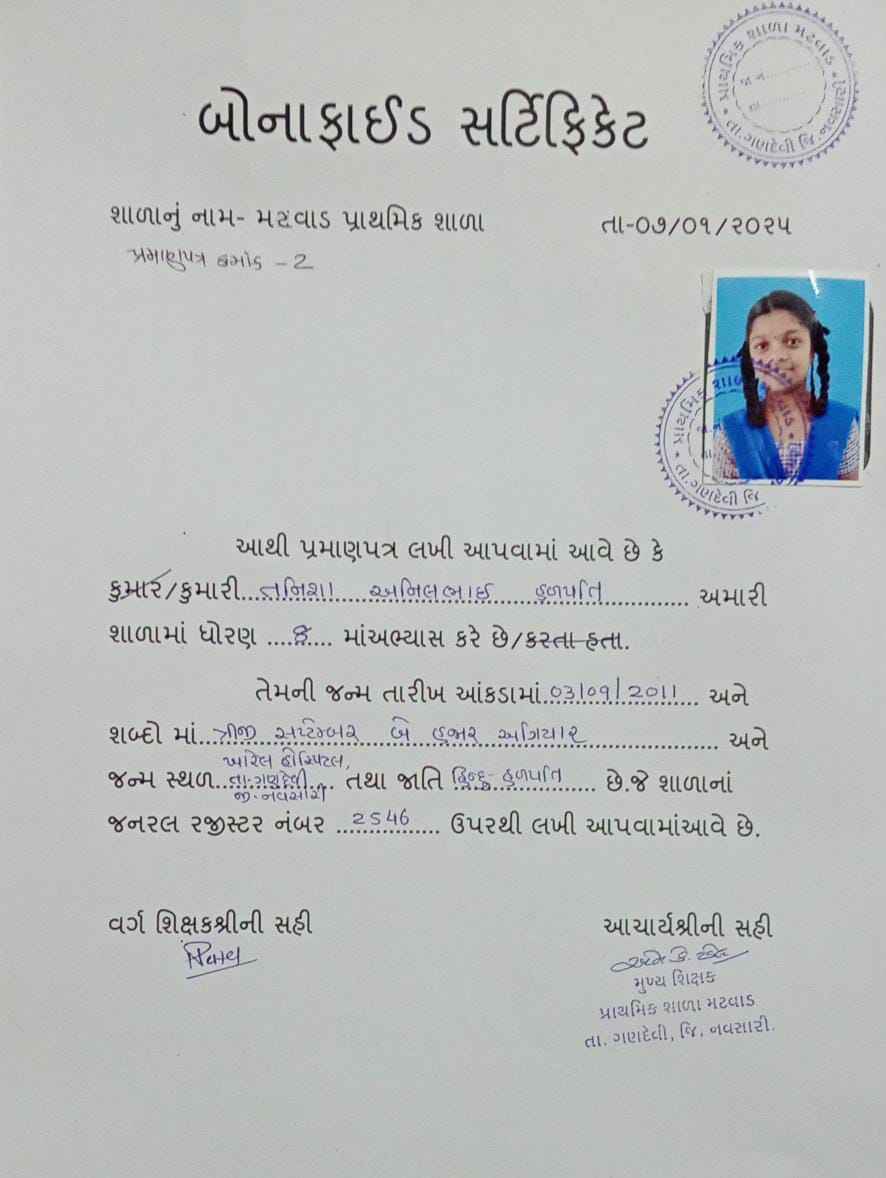 બોનાફાઈડ સર્ટિફિકેટ
પ્રાથમિક શાળા મટવાડ
તા. ગણદેવી જિ. નવસારી
જા.નં.
તા.
શાળાનું નામ- મટવાડ પ્રાથમિક શાળા
તા-૦૭/૦૧/૨૦૨૫
પ્રમાણપત્ર ક્રમાંક - 2
પ્રાથમિક શાળા મટવાડ
તા. ગણદેવી જિ
આથી પ્રમાણપત્ર લખી આપવામાં આવે છે કે
કુમાર/કુમારી...તનિશા અનિલભાઈ હળપતિ... અમારી
શાળામાં ધોરણ ....8.... માંઅભ્યાસ કરે છે/કરતા હતા.
તેમની જન્મ તારીખ આંકડામાં 03/09/2011 અને
શબ્દો માં...ત્રીજી સપ્ટેમ્બર બે હજાર અગિયાર... અને
ખારેલ હોસ્પિટલ,
જન્મ સ્થળ...તા.ગણદેવી.... તથા જાતિ હિન્દુ-હળપતિ છે.જે શાળાનાં
જી.નવસારી
જનરલ રજીસ્ટર નંબર ...2546... ઉપરથી લખી આપવામાંઆવે છે.
વર્ગ શિક્ષકશ્રીની સહી
આચાર્યશ્રીની સહી
મુખ્ય શિક્ષક
પ્રાથમિક શાળા મટવાડ
તા. ગણદેવી, જિ. નવસારી.